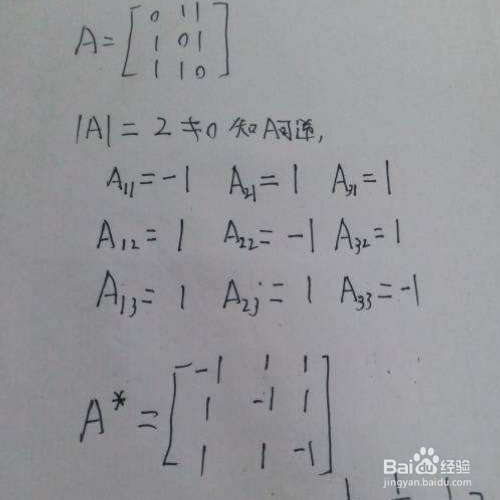 A = [ 0 1 1
1 0 1
1 1 0 ]
|A| = 2 ≠ 0 知A可逆,
A11 = -1 A21 = 1 A31 = 1
A12 = 1 A22 = -1 A32 = 1
A13 = 1 A23 = 1 A33 = -1
A* = [ -1 1 1
1 -1 1
1 1 -1 ]
Baidu经验
jingyan.baidu.com